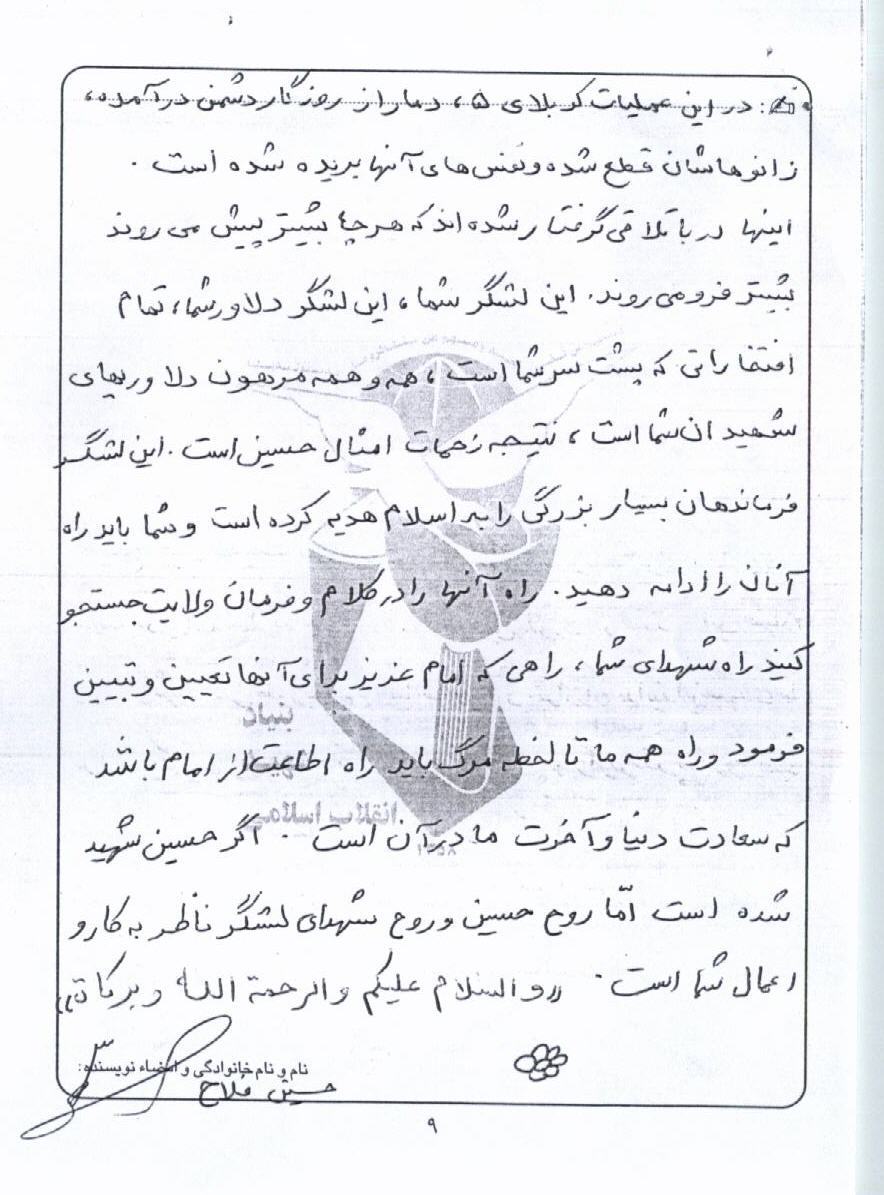 در این عملیات کربلای ۵، دمار از روزگار دشمن درآمده،
زانوهاشان قطع شده و نفس‌های آنها بریده شده است.
اینها در باتلاقی گرفتار شده‌اند که هر چه بیشتر پیش می‌روند
بیشتر فرو می‌روند. این لشگر شما، این لشگر دلاور شما، تمام
افتخاراتی که پشت سر شما است، همه و همه مرهون دلاوریهای
شهیدان شما است، نتیجه زحمات امثال حسین است. این لشگر
فرماندهان بسیار بزرگی را به اسلام هدیه کرده است و شما باید راه
آنان را ادامه دهید. راه آنها را در کلام و فرمان ولایت جستجو
کنید راه شهدای شما، راهی که امام عزیز برای آنها تعیین و تبیین
فرمود و راه همه ما تا لحظه مرگ باید راه اطاعت از امام باشد
که سعادت دنیا و آخرت ما در آن است. اگر حسین شهید
شده است امّا روح حسین و روح شهدای لشگر ناظر به کار و
اعمال شما است. «والسلام علیکم والرحمة الله و برکاته»
نام و نام خانوادگی و امضاء نویسنده:
حسین فلاح
۹
بنیاد
انقلاب اسلامی